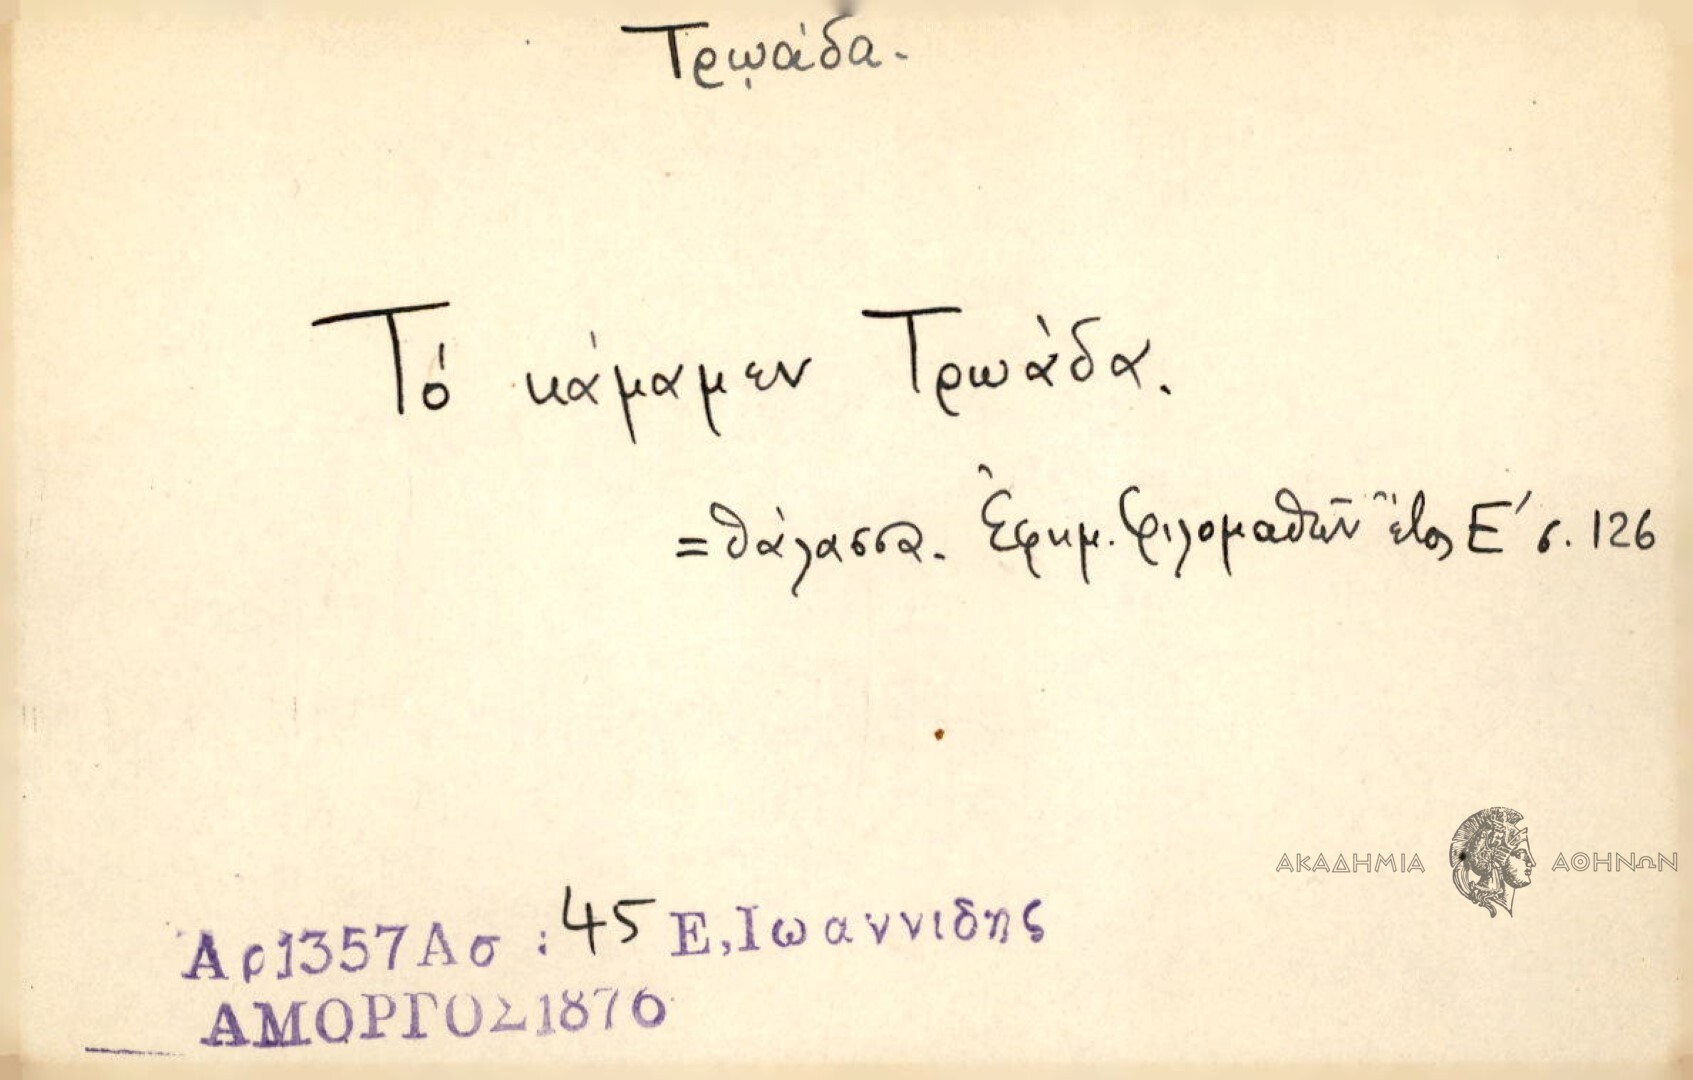 Τρῳάδα.
Τό κάμαμεν Τρωάδα.
=θάλασσα. Ἐφημ. Φιλομαθῶν ἔτος Ε΄ σ. 126
ΑΚΑΔΗΜΙΑ ΑΘΗΝΩΝ
Αρ1357Ασ : 45 Ε,Ιωαννιδης
ΑΜΟΡΓΟΣ1876